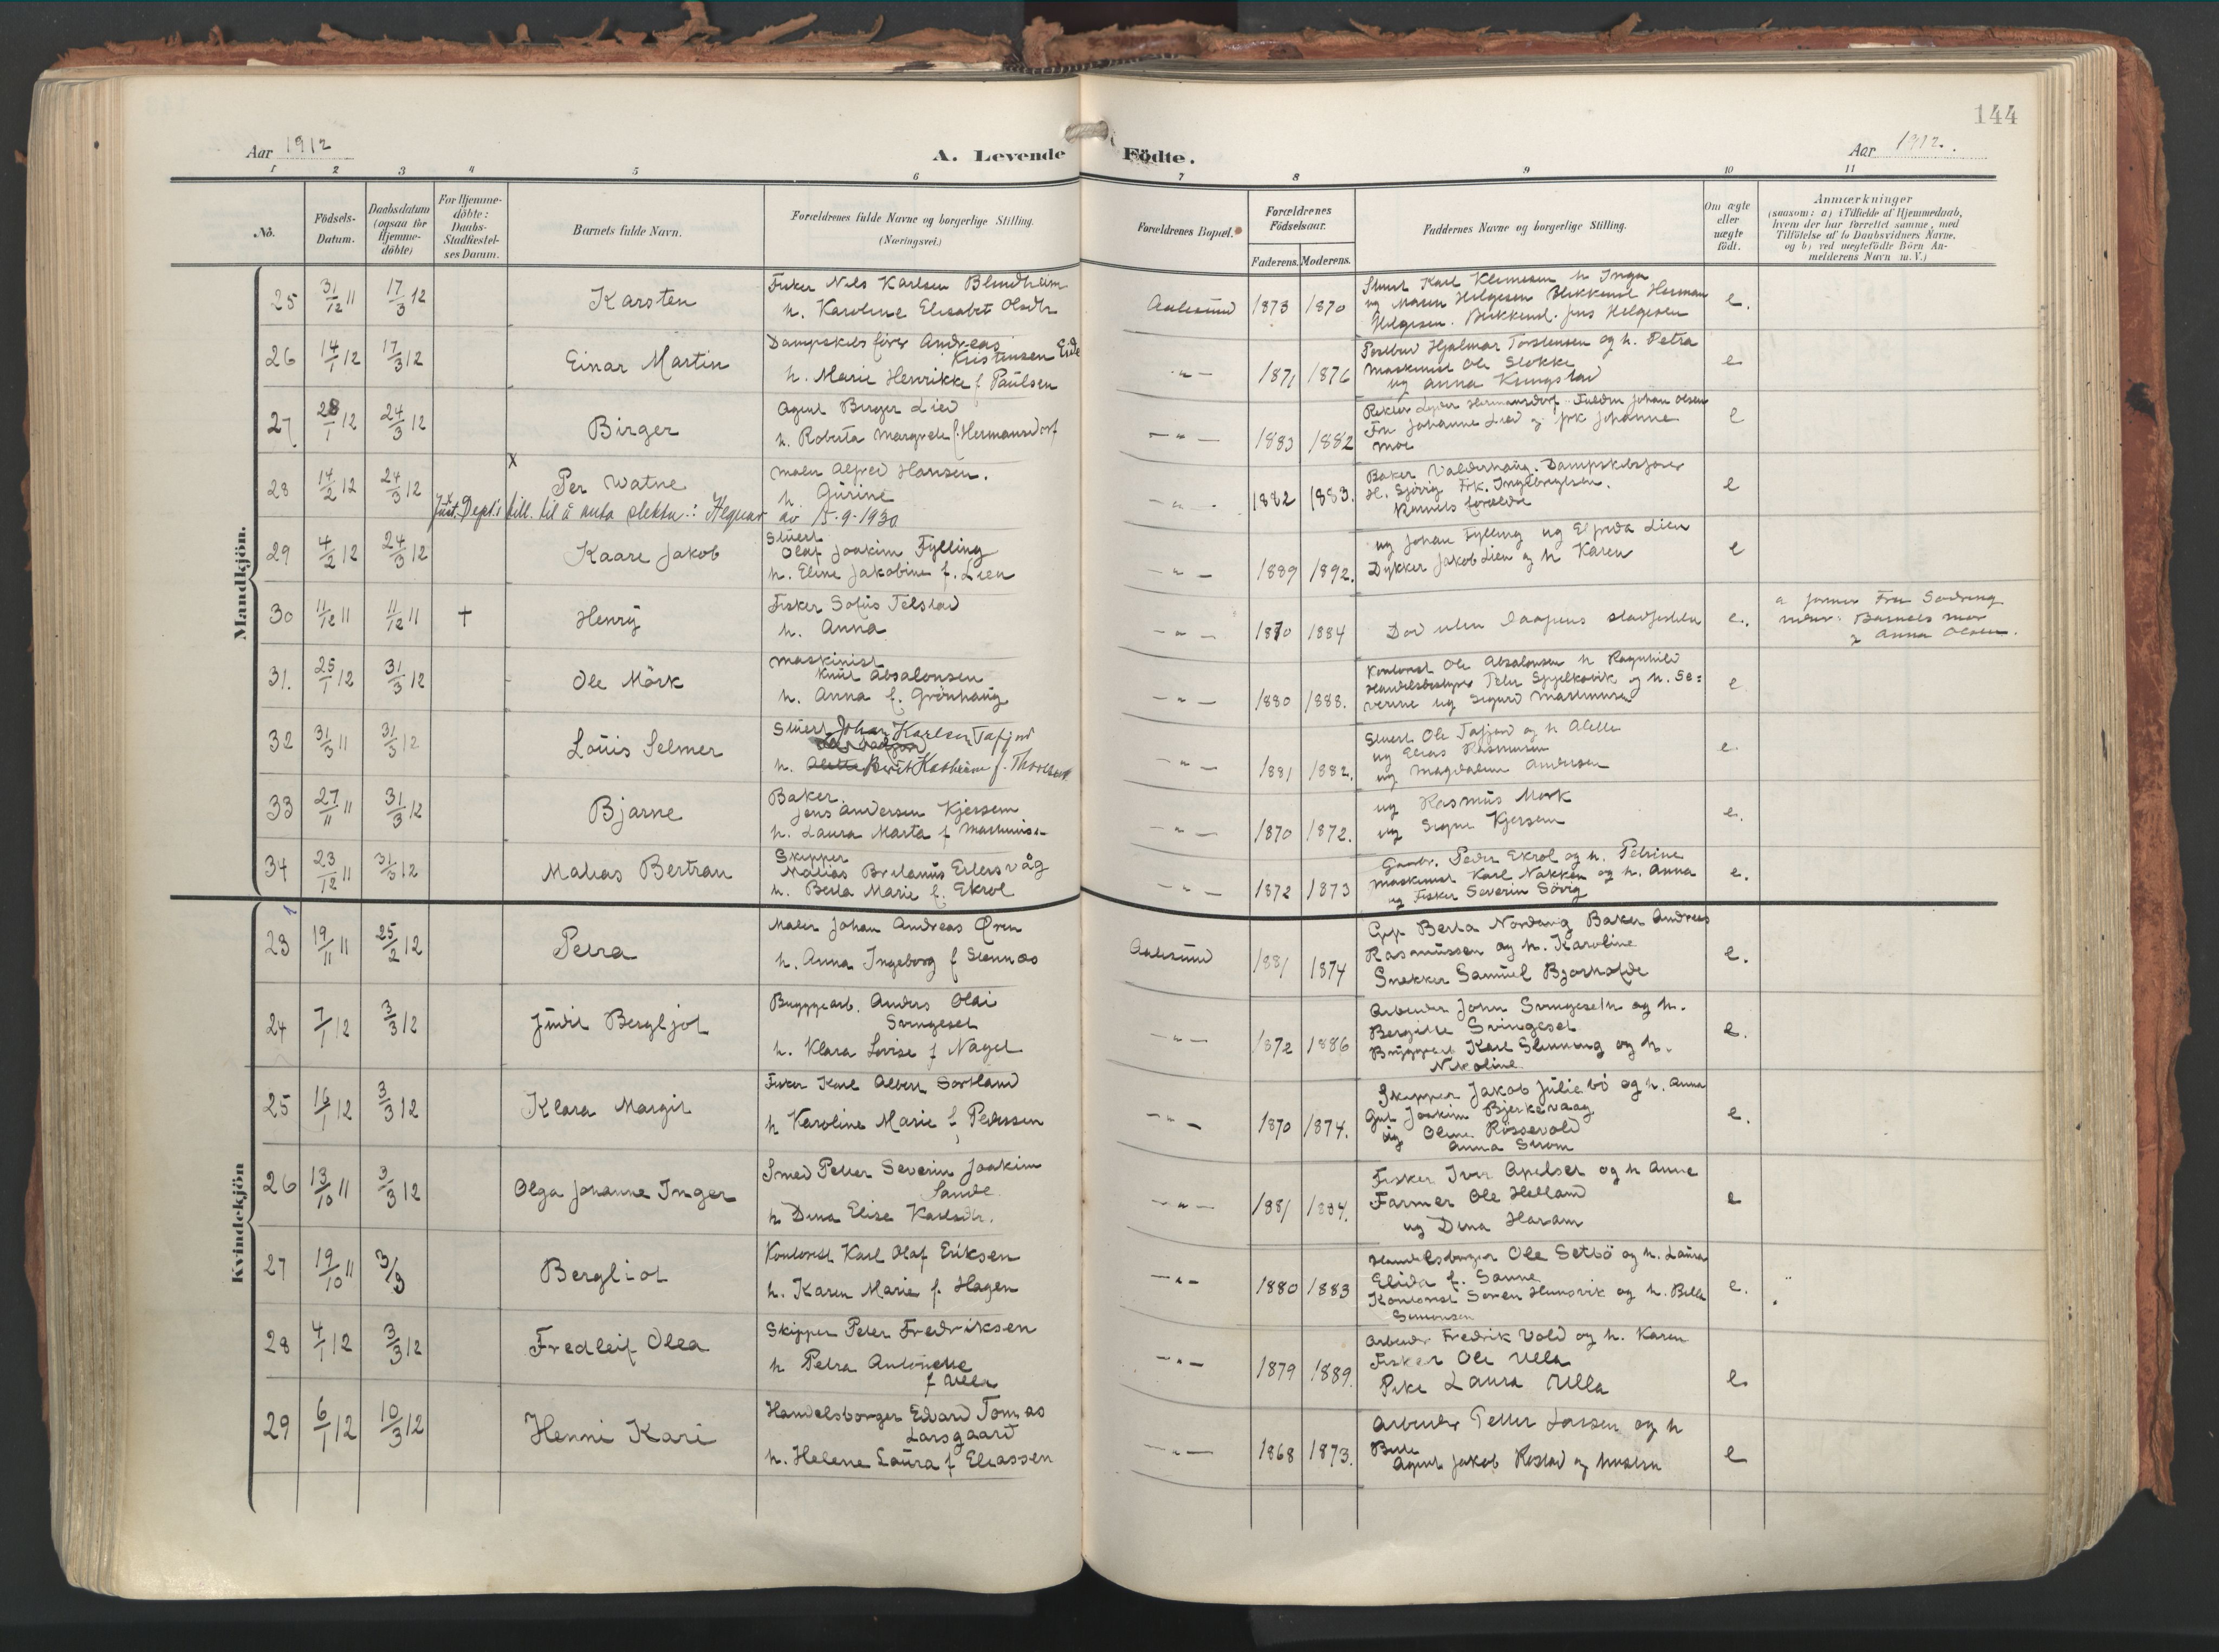 144
Aar 1912
A. Levende Födte.
Aar 1912.
1 2 3 4 5 6 7 8 9 10 11
No.
Födsels-
Datum.
Daabsdatum
(ogsaa for
Hjemme-
döbte)
For Hjemme-
döbte:
Daabs-
Stadfæstel-
ses Datum.
Barnets fulde Navn.
Forældrenes fulde Navne og borgerlige Stilling.
(Næringsvei.)
Forældrenes Bopæl.
Forældrenes
Födselsaar.
Faderens. Moderens.
Faddernes Navne og borgerlige Stilling.
Om ægte
eller
uægte
födt.
Anmærkninger
(saasom: a) i Tilfælde af Hjemmedaab,
hvem der har forrettet samme, med
Tilföielse af to Daabsvidners Navne,
og b) ved uægtefödte Börn An-
melderens Navn m. V.)
Mandkjön.
25 31/12 11 17/3 12 Karsten
Fisker Nils Karlsen Blindheim
h. Karoline Elisabet Olsdtr
Aalesund 1873 1870
Karl Klemesen h Inga
og Maren Helgesen Blikkensl Herman
Helgesen. Blikkensl. Jens Helgesen
e.
26 14/1 12 17/3 12 Einar Martin
Dampskibsförer Andreas
Kristensen Eide
h. Marie Henrikke f Paulsen
-"- 1871 1876
Postbud Hjalmar Torstensen og h. Petra
Maskinist Ole Slokke
ug Anna Kungstad
e
27 28/1 12 24/3 12 Birger
Agent Birger Lied
h. Roberta Margrete f. Hermansdorf
-"- 1883 1882
Lyder Hermansdorf Johan Olsen
Fru Johanne Lied og frk Johanne
Moe
e
28 14/2 12 24/3 12 x Per Watne
Maler Alfred Hansen.
h. Gurine
-"- 1882 1883.
Baker Valderhaug. Dampskibsförer
H. Sjövig Frk. Ingebrigtsen.
Barnets forældre
e
Just. Dept.'s till. til å anta slektn.: Alquar av 15-9-1930
29 4/2 12 24/3 12 Kaare Jakob
Stuert
Olaf Joakim Fylling
h. Eline Jakobine f. Lien
-"- 1889 1892.
ug Johan Fylling ug Elfrida Lien
Dykker Jakob Lien og h Karen
e
30 11/12 11 11/12 11 + Henry
Fisker Sofus Telstad
h. Anna
-"- 1870 1884
Död uten daapens stadfestelse
e.
a Fru
Barnets mor
g Anna Olsen.
31. 25/1 12 31/3 12 Ole Mörk
Maskinist
Knut Absalonsen
h. Anna f. Grönhaug
-"- 1880 1888.
Kontorist Ole Absalonsen h Ragnhild
Handelsbestyrer Peter Spjelkavik og h. Se=
verine ug Sigurd Martinusen
e
32 31/3 11 31/3 12 Louis Selmer
Stuert Johan Karlsen Tafjord
h. Berit Kathrine f. Thoresen
-"- 1881 1882.
Stuert Ole Tafjord og h Alette
ug Elias Rasmusen
ug Magdalene Andersen
e.
33 27/11 11 31/3 12 Bjarne
Baker
Jens Andersen Kjersem
h. Laura Marta f Martinusen
-"- 1870 1872.
ug Rasmus Mork
ug Signe Kjersem
e.
34 23/12 11 31/3 12 Matias Bertran
Skipper
Matias Eilersvåg
h. Berta Marie f. Ekrol
-"- 1872 1873
Gaardbr. Peder Ekrol og h. Petrine
Maskinist Karl Nakken og h. Anna
ug Fisker Severin Sövig
e.
Kvindekjön
23 19/11 11 25/2 12 Petra
Maler Johan Andreas Øren
h. Anna Ingeborg f Stennes
Aalesund 1881 1874
Gp Berta Nordang Baker Andreas
Rasmussen og h. Karoline
Snekker Samuel Bjorhofde
e.
24 7/1 12 3/3 12 Judit Bergljot
Bryggearb. Anders Olai
Svingeset
h. Klara Lovise f Nagel
-"- 1872 1886
Arbeider John Svingeseth og h.
Bergitte Svingeset
Bryggearb Karl Slinning og h.
Nikoline.
e.
25 16/1 12 3/3 12 Klara Margit
Fisker Karl Albert Sortland
h Karoline Marie f Pedersen
-"- 1870 1874.
Skipper Jakob Juliebö og h. Anna
Gut Joakim Bjerkevaag
ug Oline Rössevold
Anna Strom
e.
26 13/10 11 3/3 12 Olga Johanne Inger
Smed Petter Severin Joakim
Sande
h Dina Elise Karlsdtr.
-"- 1881 1884.
Fisker Iver Apelset og h Anne
Farmer Ole Helland
ug Dina Haram
e
27 19/10 11 3/3 Bergliot
Kontorist Karl Olaf Eriksen
h. Karen Marie f. Hagen
-"- 1880 1883
Handelsborger Ole Setbö og h. Laura
Elida f. Sanne
Kontorist Soren Hunsvik og h. Bella
Simonsen
e.
28 4/1 12 3/3 12 Fredleif Olea
Skipper Peter Fredriksen
h Petra Antonette
f Ulla
-"- 1879 1889.
Arbeider Fredrik Vold og h. Karen
Fisker Ole Ulla
Pike Laura Ulla
e
29 6/1 12 10/3 12 Henni Kari
Handelsborger Edvard Tomas
Larsgaard
h. Helene Laura f Eliassen
-"- 1868 1873.
Arbeider Petter Larsen og h
Berte
Agent Jakob Rostad og hustru
e